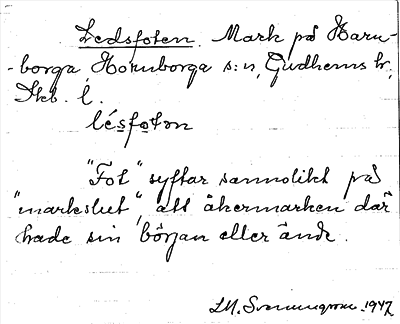 Ledsfoten. Mark på Horn-
-borga Hornborga s:n, Gudhems hd,
Skb. l.
lésfoton
"Fot" syftar sannolikt på
"markslut", att åkermarken där
hade sin början eller ände.
1947